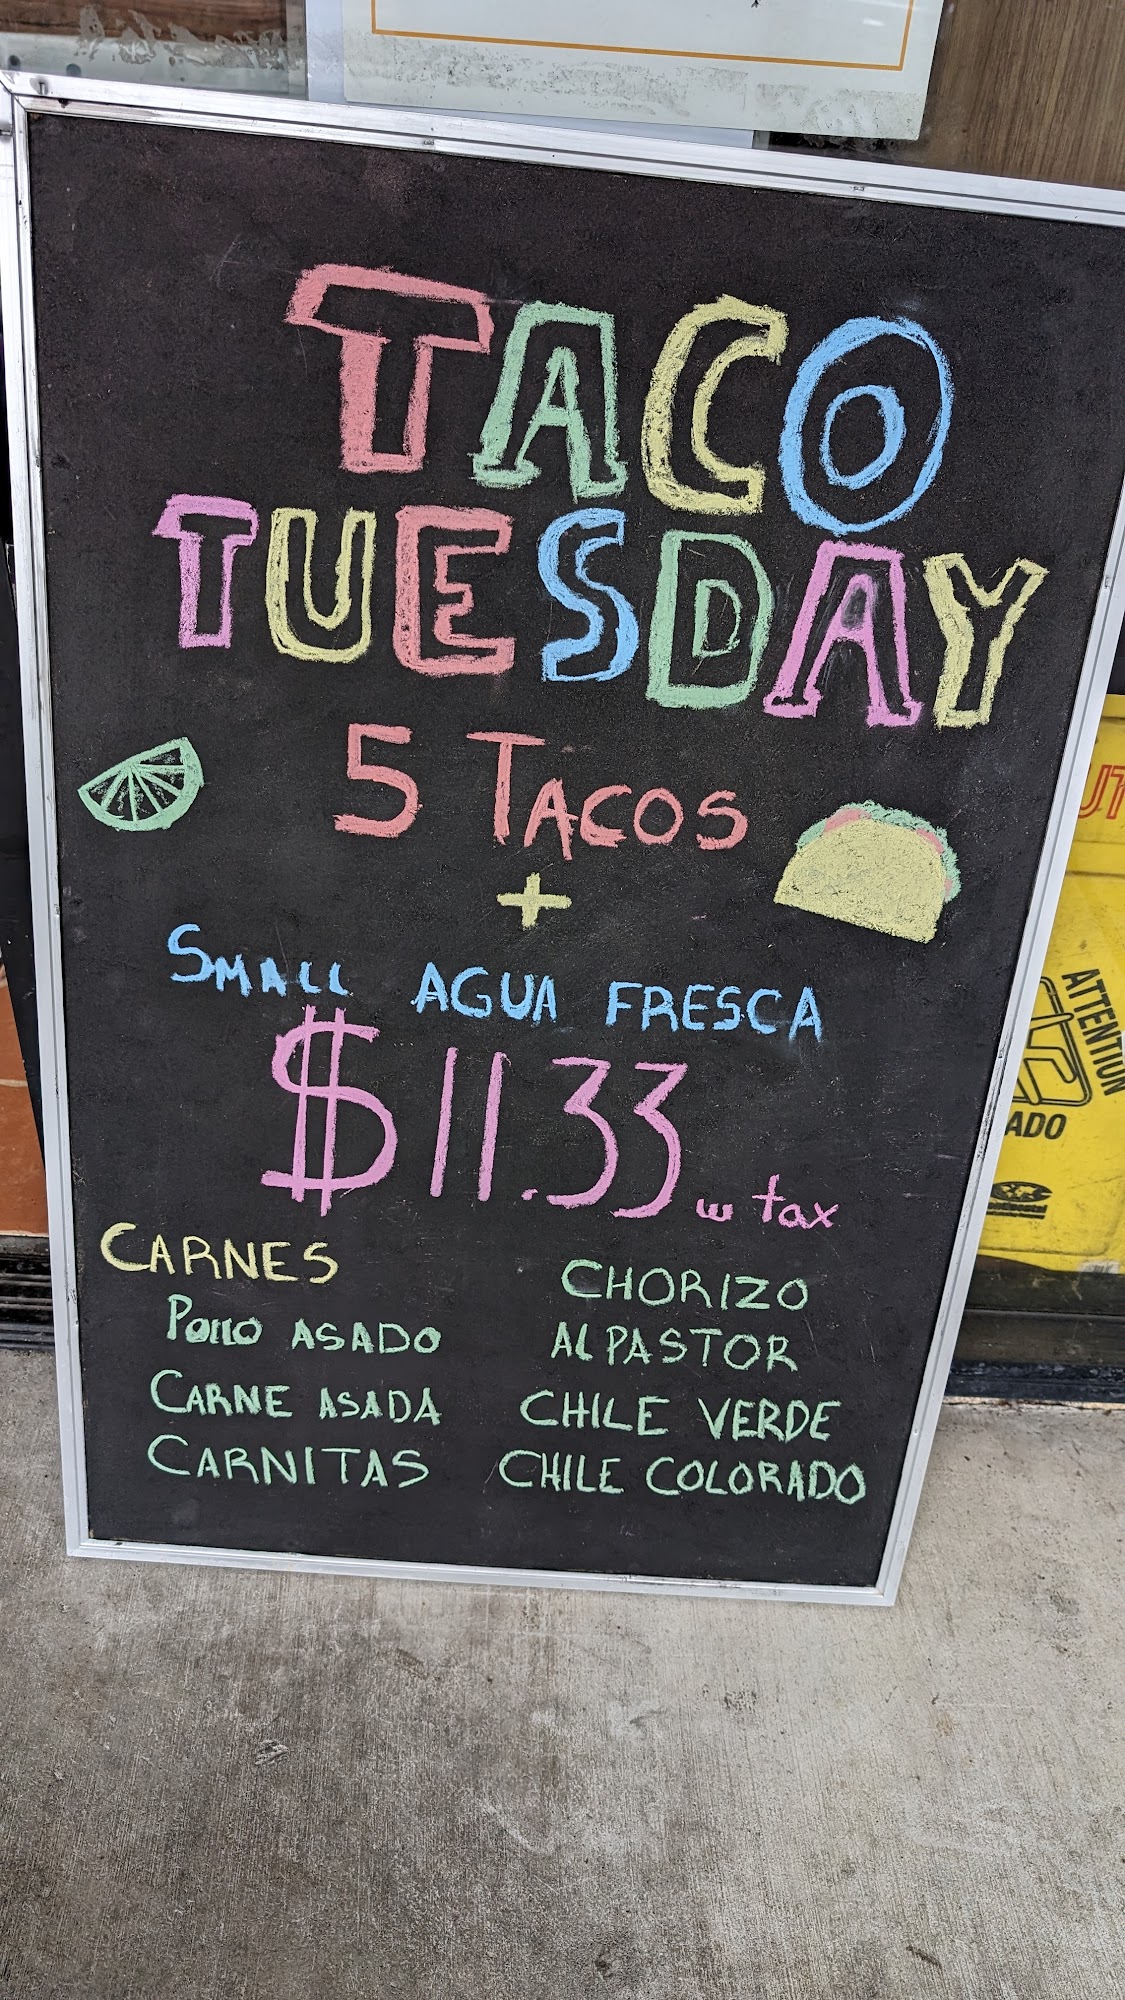 TACO
TUESDAY
5 TACOS
+
SMALL AGUA FRESCA
$11.33 w tax
CARNES
POLLO ASADO
CARNE ASADA
CARNITAS
CHORIZO
AL PASTOR
CHILE VERDE
CHILE COLORADO
UT
ATTENTION
ADO